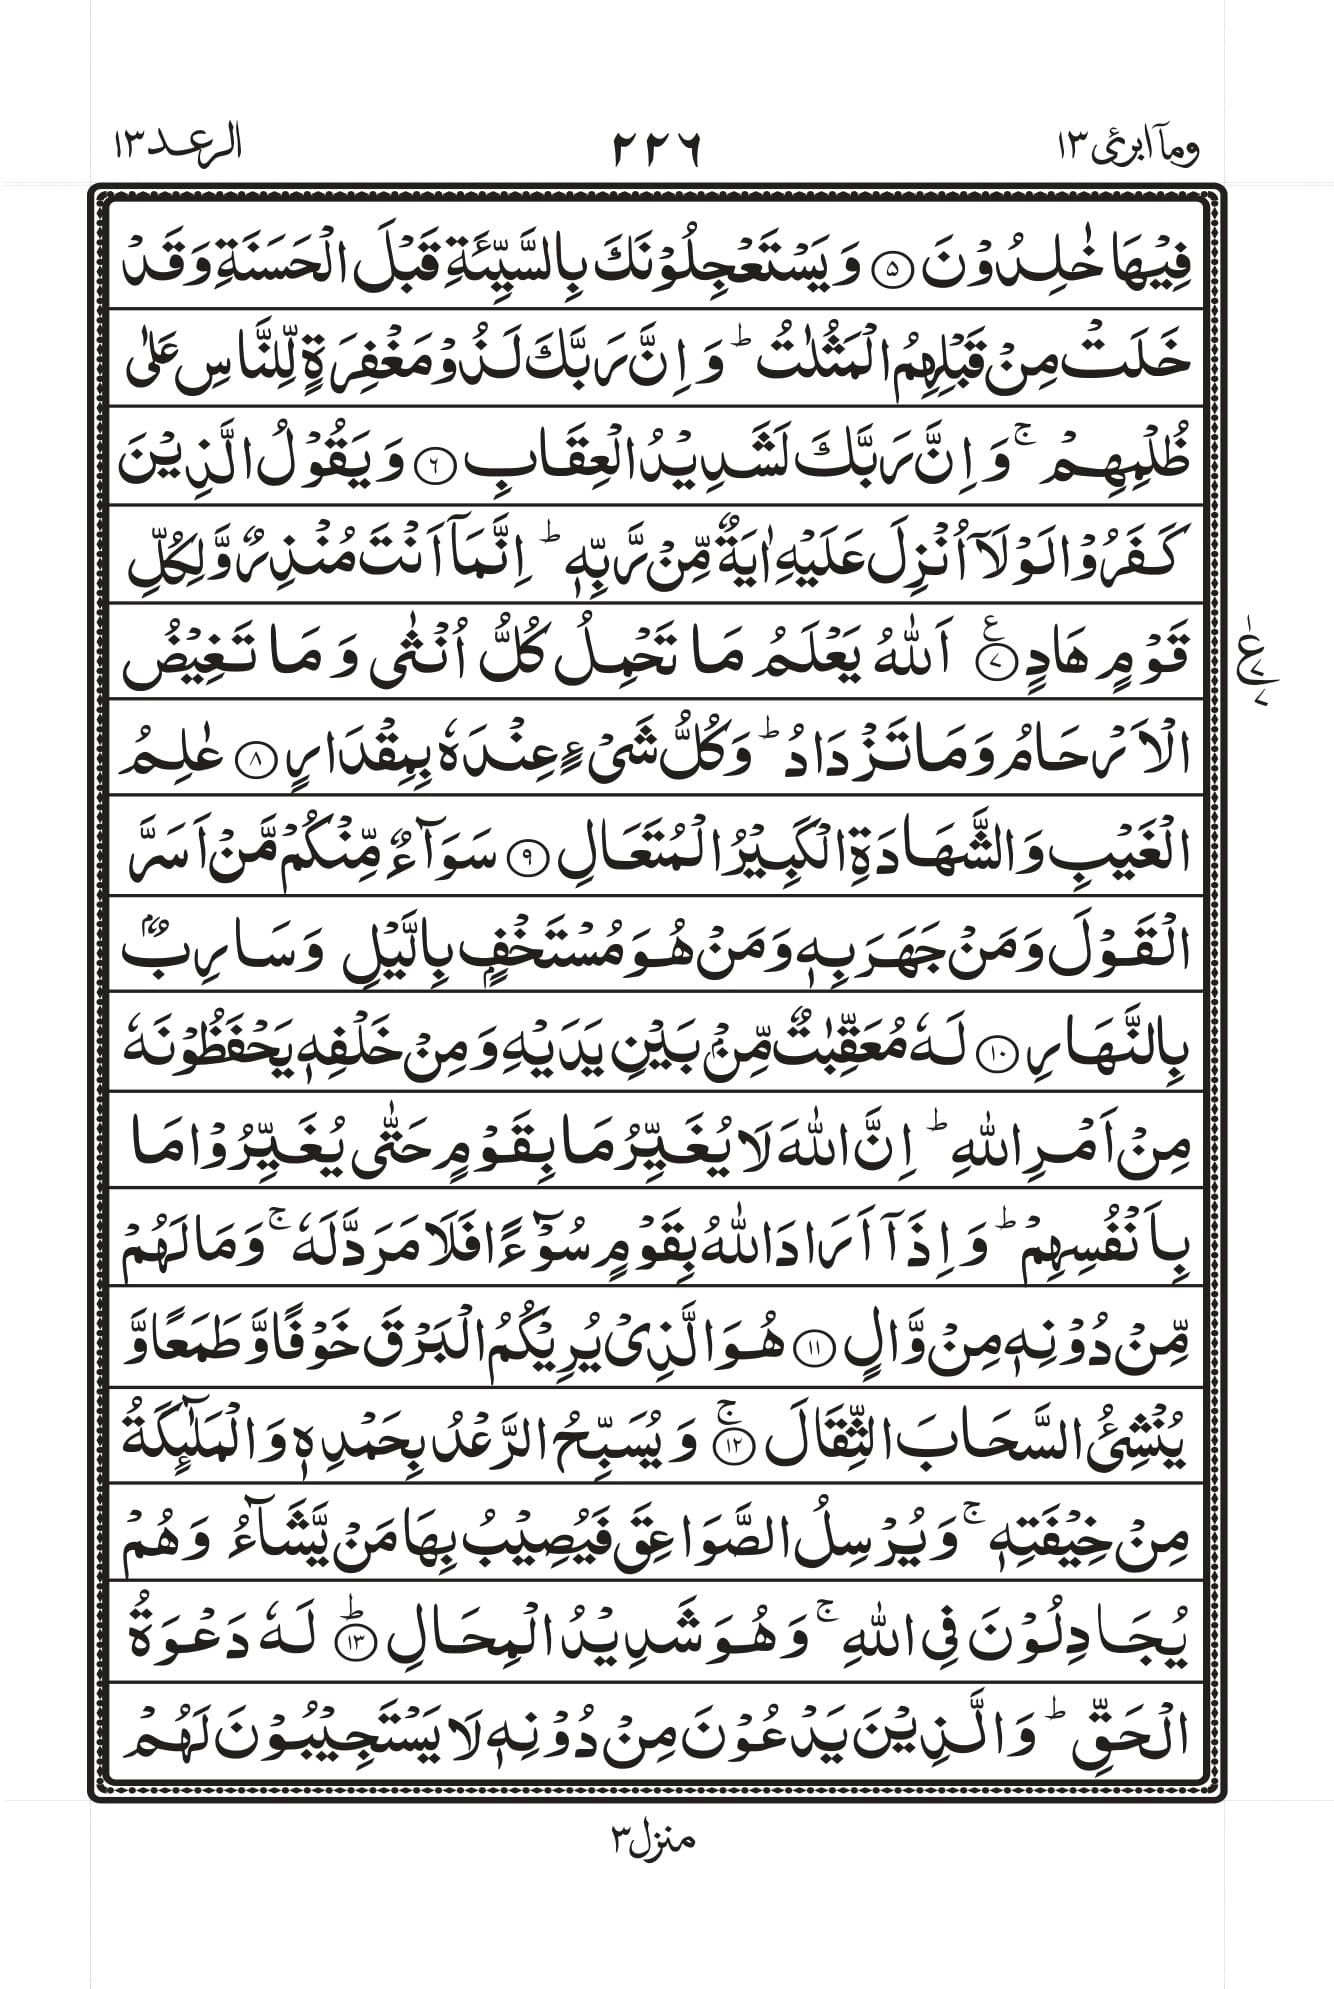 وماۤ ابرئ ١٣
٢٢٦
الرعد ١٣
فِيْهَا خٰلِدُوْنَ ۝٥ وَيَسْتَعْجِلُوْنَكَ بِالسَّيِّئَةِ قَبْلَ الْحَسَنَةِ وَقَدْ
خَلَتْ مِنْ قَبْلِهِمُ الْمَثُلٰتُ ؕ وَاِنَّ رَبَّكَ لَذُوْ مَغْفِرَةٍ لِّلنَّاسِ عَلٰى
ظُلْمِهِمْ ۚ وَاِنَّ رَبَّكَ لَشَدِيْدُ الْعِقَابِ ۝٦ وَيَقُوْلُ الَّذِيْنَ
كَفَرُوْا لَوْلَاۤ اُنْزِلَ عَلَيْهِ اٰيَةٌ مِّنْ رَّبِّهٖ ؕ اِنَّمَاۤ اَنْتَ مُنْذِرٌ وَّلِكُلِّ
قَوْمٍ هَادٍ ۝٧ ع اَللّٰهُ يَعْلَمُ مَا تَحْمِلُ كُلُّ اُنْثٰى وَمَا تَغِيْضُ
الْاَرْحَامُ وَمَا تَزْدَادُ ؕ وَكُلُّ شَىْءٍ عِنْدَهٗ بِمِقْدَارٍ ۝٨ عٰلِمُ
الْغَيْبِ وَالشَّهَادَةِ الْكَبِيْرُ الْمُتَعَالِ ۝٩ سَوَآءٌ مِّنْكُمْ مَّنْ اَسَرَّ
الْقَوْلَ وَمَنْ جَهَرَ بِهٖ وَمَنْ هُوَ مُسْتَخْفٍۭ بِالَّيْلِ وَسَارِبٌۢ
بِالنَّهَارِ ۝١٠ لَهٗ مُعَقِّبٰتٌ مِّنْۢ بَيْنِ يَدَيْهِ وَمِنْ خَلْفِهٖ يَحْفَظُوْنَهٗ
مِنْ اَمْرِ اللّٰهِ ؕ اِنَّ اللّٰهَ لَا يُغَيِّرُ مَا بِقَوْمٍ حَتّٰى يُغَيِّرُوْا مَا
بِاَنْفُسِهِمْ ؕ وَاِذَاۤ اَرَادَ اللّٰهُ بِقَوْمٍ سُوْٓءًا فَلَا مَرَدَّ لَهٗ ۚ وَمَا لَهُمْ
مِّنْ دُوْنِهٖ مِنْ وَّالٍ ۝١١ هُوَ الَّذِىْ يُرِيْكُمُ الْبَرْقَ خَوْفًا وَّطَمَعًا وَّ
يُنْشِئُ السَّحَابَ الثِّقَالَ ۝١٢ ۚ وَيُسَبِّحُ الرَّعْدُ بِحَمْدِهٖ وَالْمَلٰٓئِكَةُ
مِنْ خِيْفَتِهٖ ۚ وَيُرْسِلُ الصَّوَاعِقَ فَيُصِيْبُ بِهَا مَنْ يَّشَآءُ وَهُمْ
يُجَادِلُوْنَ فِى اللّٰهِ ۚ وَهُوَ شَدِيْدُ الْمِحَالِ ۝١٣ ؕ لَهٗ دَعْوَةُ
الْحَقِّ ؕ وَالَّذِيْنَ يَدْعُوْنَ مِنْ دُوْنِهٖ لَا يَسْتَجِيْبُوْنَ لَهُمْ
منزل ٣